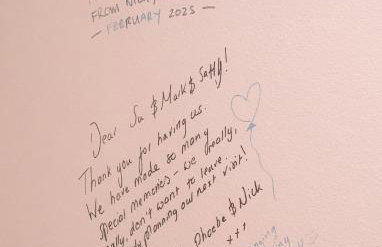 FROM NICK
— FEBRUARY 2025 —
Dear Su & Mark & Satty!
Thank you for having us.
We have made so many
special memories - we really,
really, don't want to leave.
planning our next visit!
Phoebe & Nick
x + x